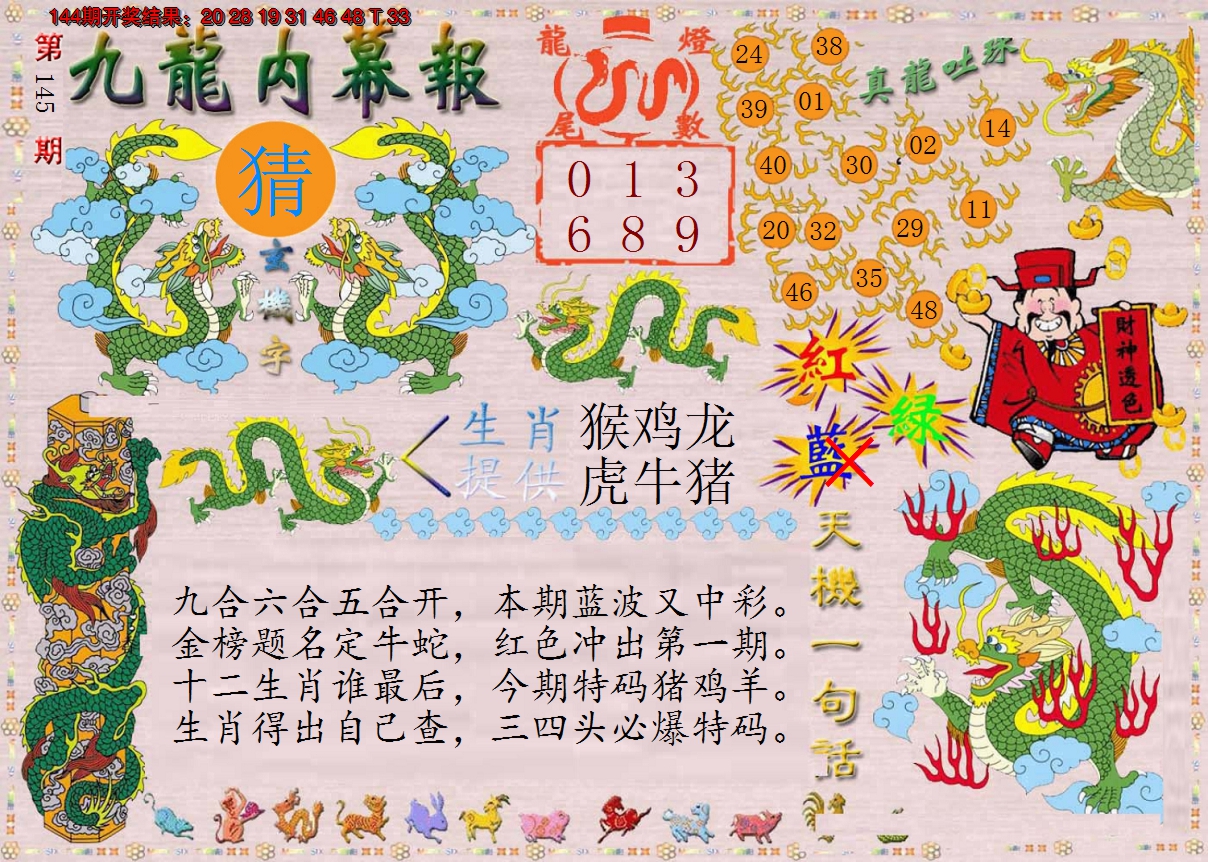 144期开奖结果：20 28 19 31 46 48 T 33
第145期
九龍内幕報
猜
玄機字
龍燈
尾數
0 1 3
6 8 9
真龍吐珠
24 38
39 01
02 14
40 30
20 32 29 11
46 35 48
紅
綠
藍
財神透色
生肖提供
猴鸡龙
虎牛猪
天機一句話
九合六合五合开，本期蓝波又中彩。
金榜题名定牛蛇，红色冲出第一期。
十二生肖谁最后，今期特码猪鸡羊。
生肖得出自己查，三四头必爆特码。